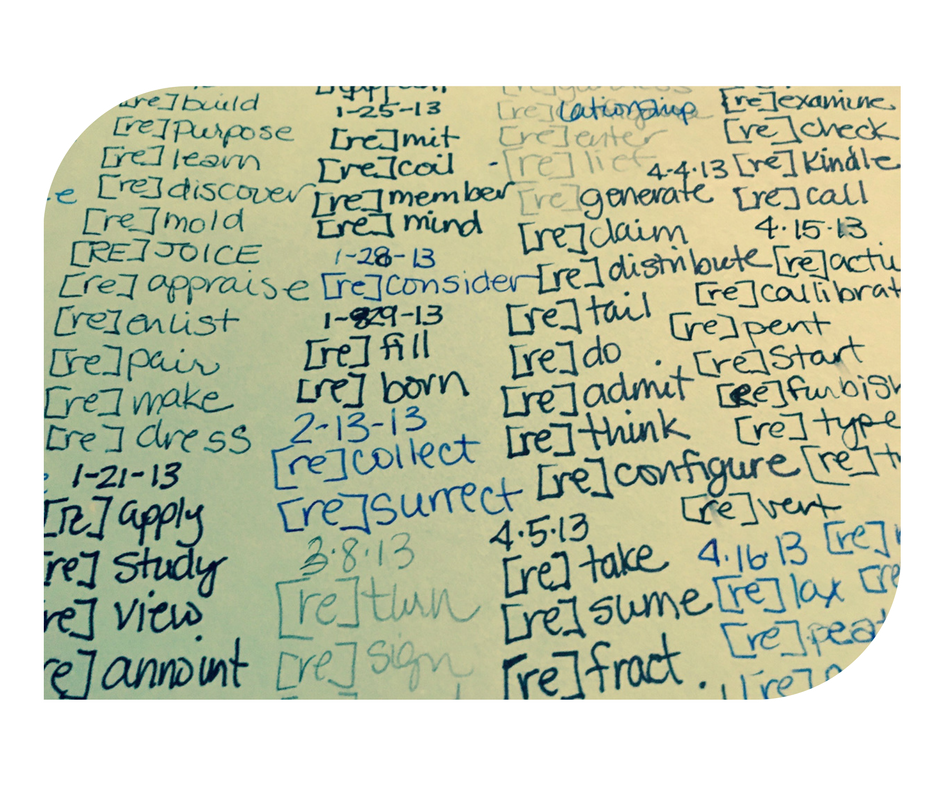 [re]build
[re]purpose
[re]learn
[re]discover
[re]mold
[RE]JOICE
[re]appraise
[re]enlist
[re]pair
[re]make
[re]dress
1-21-13
[re]apply
[re]study
[re]view
[re]annoint
1-25-13
[re]mit
[re]coil
[re]member
[re]mind
1-28-13
[re]consider
1-29-13
[re]fill
[re]born
2-13-13
[re]collect
[re]surrect
3·8·13
[re]turn
[re]sign
[re]lationship
[re]enter
- [re]lief
4-4-13
[re]generate
[re]claim
[re]distribute
[re]tail
[re]do
[re]admit
[re]think
[re]configure
4·5·13
[re]take
[re]sume
[re]fract
[re]examine
[re]check
[re]kindle
[re]call
4·15·13
[re]actu
[re]callibrat
[re]pent
[re]start
[re]furbish
[re]type
[re]vert
4·16·13
[re]lax
[re]peat
[re]